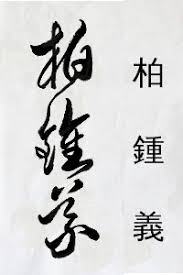 柏鍾義
柏鍾義